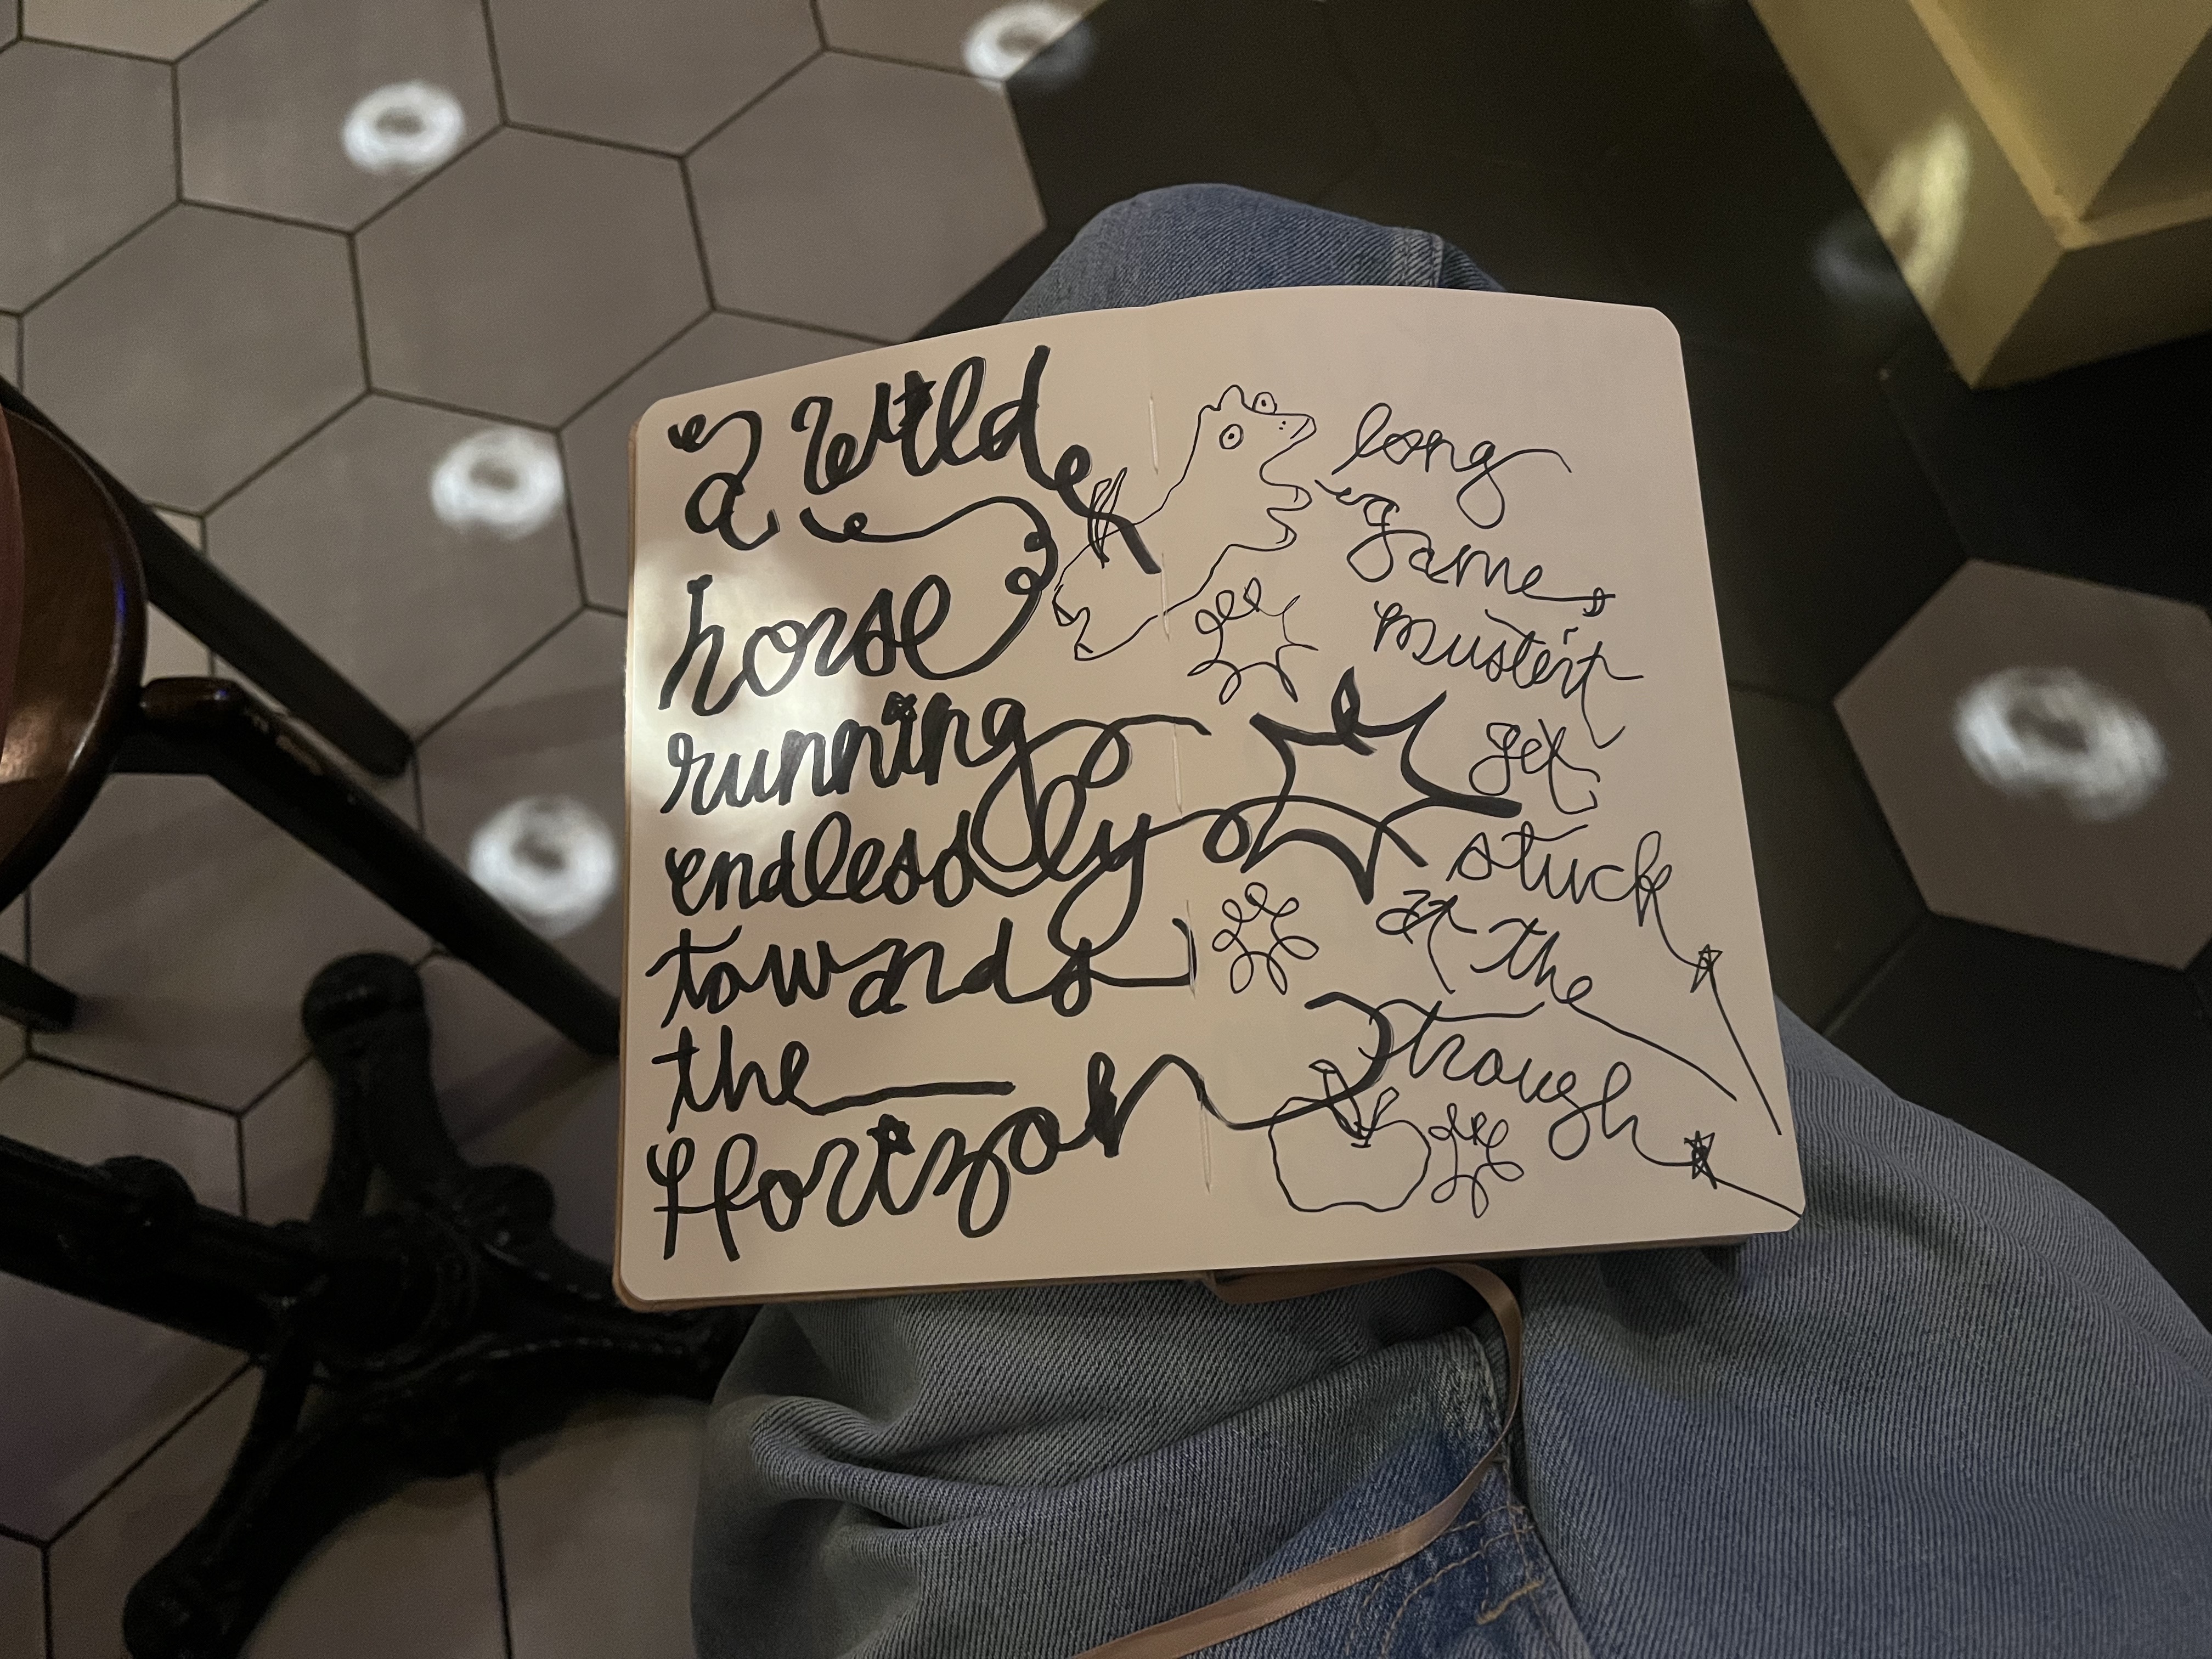 a wild
horse
running
endlessly
towards
the
Horizon
long
game
mustn't
get
stuck
at the
trough